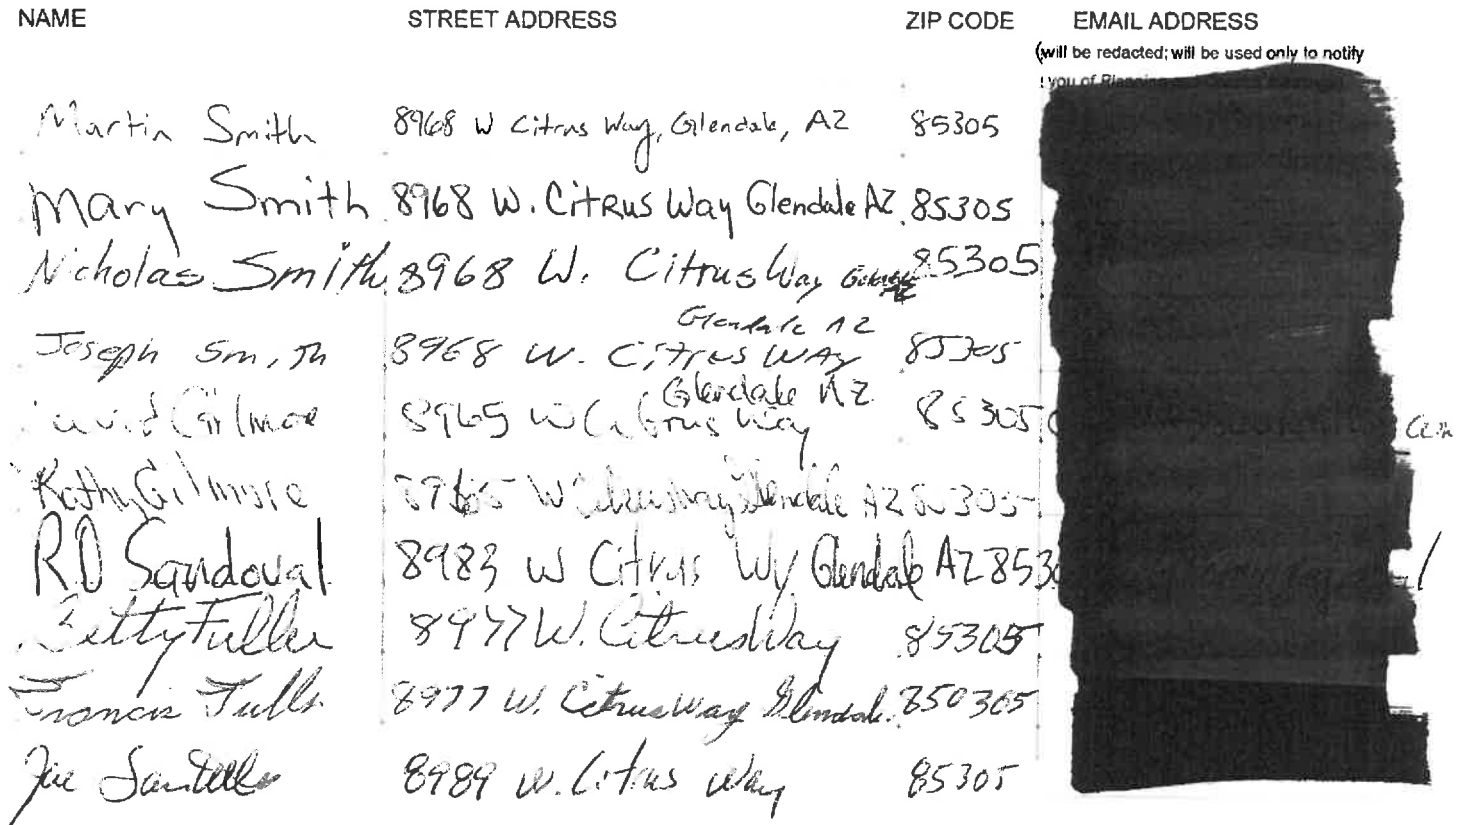 NAME STREET ADDRESS ZIP CODE EMAIL ADDRESS
(will be redacted; will be used only to notify
you of
Martin Smith 8968 W Citrus Way, Glendale, AZ 85305
Mary Smith 8968 W. Citrus Way Glendale AZ 85305
Nicholas Smith 8968 W. Citrus Way Glendale AZ 85305
Glendale AZ
Joseph Smith 8968 W. Citrus WAY 85305
Glendale AZ
David Gilmore 8965 W Citrus Way 85305
Kathy Gilmore 8965 W Citrus Way Glendale AZ 85305
RD Sandoval 8983 W Citrus Wy Glendale AZ 853
Betty Fuller 8977 W. Citrus Way 85305
Francis Fuller 8977 W. Citrus Way Glendale 850305
Joe 8989 W. Citrus Way 85305